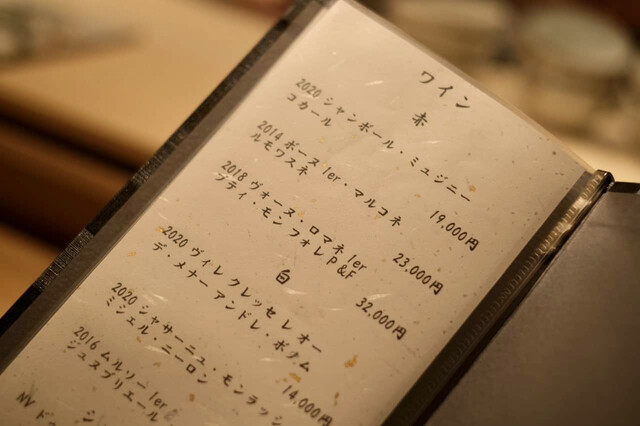 ワイン
赤
2020 シャンボール・ミュジニー
コカール
19.000円
2014 ボーヌ 1er・マルコネ
ルモワスネ
23.000円
2018 ヴォーヌ・ロマネ 1er
プティ モンフォレ P&F
32.000円
白
2020 ヴィレ クレッセ レ オー
デ・メナー アンドレ・ボノム
14.000円
2020 シャサーニュ・モンラッシ
ミシェル・ニーロン
2016 ムルソー 1er
ジュヌブリエール
NV ド